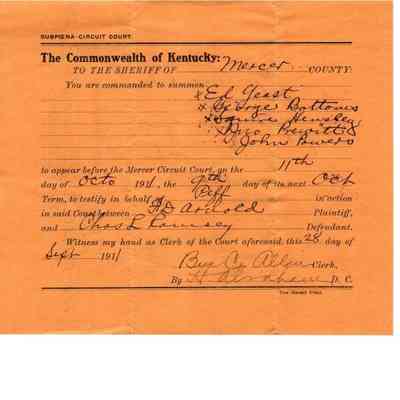 SUBPŒNA-CIRCUIT COURT.
The Commonwealth of Kentucky:
TO THE SHERIFF OF Mercer COUNTY:
You are commanded to summon
Ed Yeast
George Bottoms
Squire Hensley
Jno Prewitt
John Powers
to appear before the Mercer Circuit Court, on the 11th
day of Octo 1911, the 9th day of its next Oct
Term, to testify in behalf Plff in action
in said Court between Arnold Plaintiff,
and Chas L Ramsey Defendant.
Witness my hand as Clerk of the Court aforesaid, this 28 day of
Sept 1911
Ben C. Allin Clerk.
By D. C.